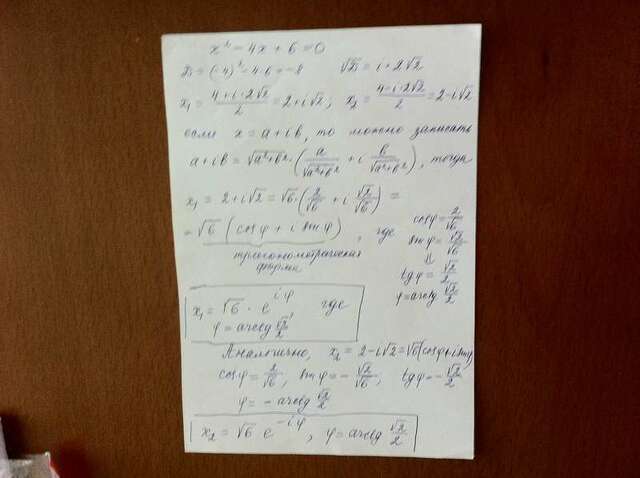 x² - 4x + 6 = 0
D = (-4)² - 4·6 = -8    √D = i·2√2
x₁ = (4 + i·2√2)/2 = 2 + i√2; x₂ = (4 - i·2√2)/2 = 2 - i√2
если x = a + iв, то можно записать
a + iв = √(a²+в²) · (a/√(a²+в²) + i в/√(a²+в²)), тогда
x₁ = 2 + i√2 = √6 · (2/√6 + i √2/√6) =
= √6 (cosφ + i sinφ), где
тригонометрическая
форма
cosφ = 2/√6
sinφ = √2/√6
⇓
tgφ = √2/2
φ = arctg √2/2
x₁ = √6 · e^(iφ), где
φ = arctg √2/2
Аналогично, x₂ = 2 - i√2 = √6(cosφ + i sinφ)
cosφ = 2/√6, sinφ = -√2/√6; tgφ = -√2/2
φ = - arctg √2/2
x₂ = √6 e^(-iφ), φ = arctg √2/2